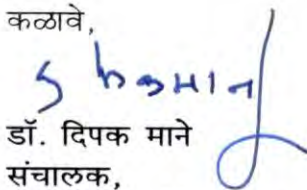 कळावे,
डॉ. दिपक माने
संचालक,